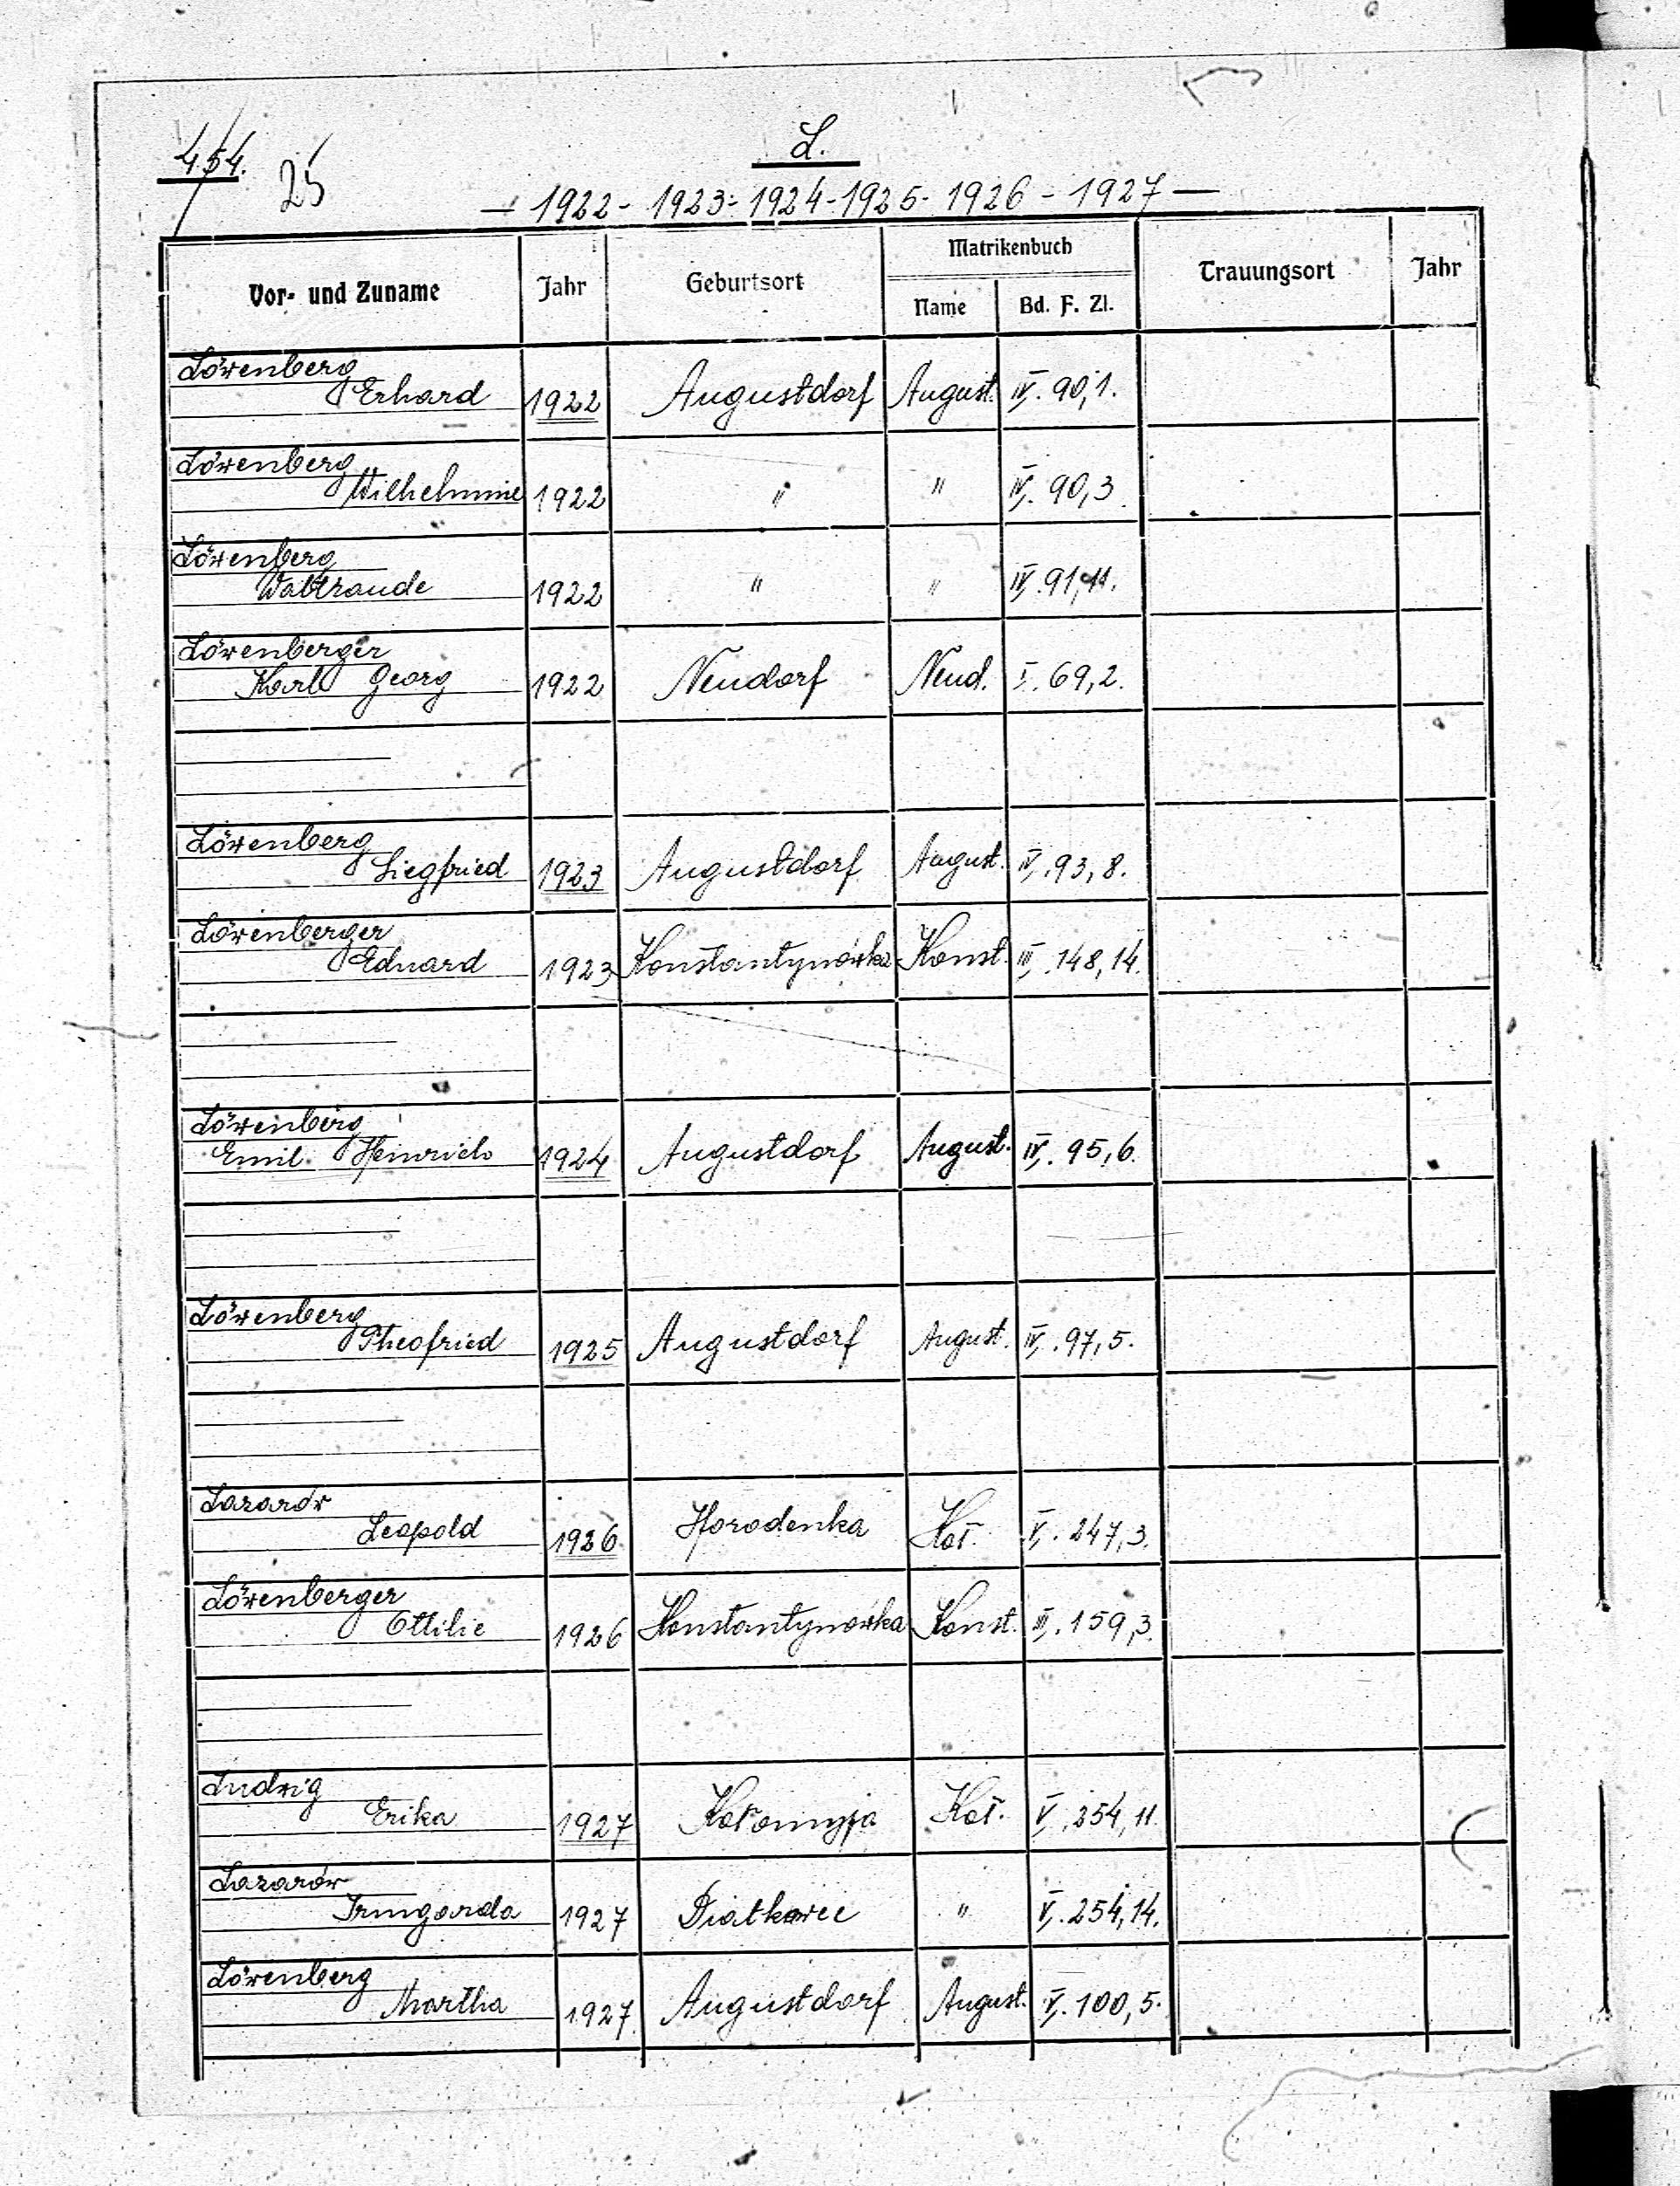 454.
25
L.
— 1922 - 1923 - 1924 - 1925 - 1926 - 1927 —
Vor- und Zuname Jahr Geburtsort Matrikenbuch Trauungsort Jahr
Name Bd. F. Zl.
Löwenberg
Erhard 1922 Augustdorf August. IV. 90,1.
Löwenberg
Wilhelmine 1922 " " IV. 90,3
Löwenberg
Waltraude 1922 " " IV. 91,11.
Löwenberger
Karl Georg 1922 Neudorf Neud. I. 69,2.
Löwenberg
Siegfried 1923 Augustdorf August. IV. 93,8.
Löwenberger
Eduard 1923 Konstantynówka Konst. III. 148,14.
Löwenberg
Emil Heinrich 1924 Augustdorf August. IV. 95,6.
Löwenberg
Theofried 1925 Augustdorf August. IV. 97,5.
Lazarów
Leopold 1926 Horodenka Koł. V. 247,3.
Löwenberger
Ottilie 1926 Konstantynówka Konst. III. 159,3.
Ludwig
Erika 1927 Kołomyja Koł. V. 254,11.
Lazarów
Irmgarda 1927 Diatkowce " V. 254,14.
Löwenberg
Martha 1927 Augustdorf August. V. 100,5.